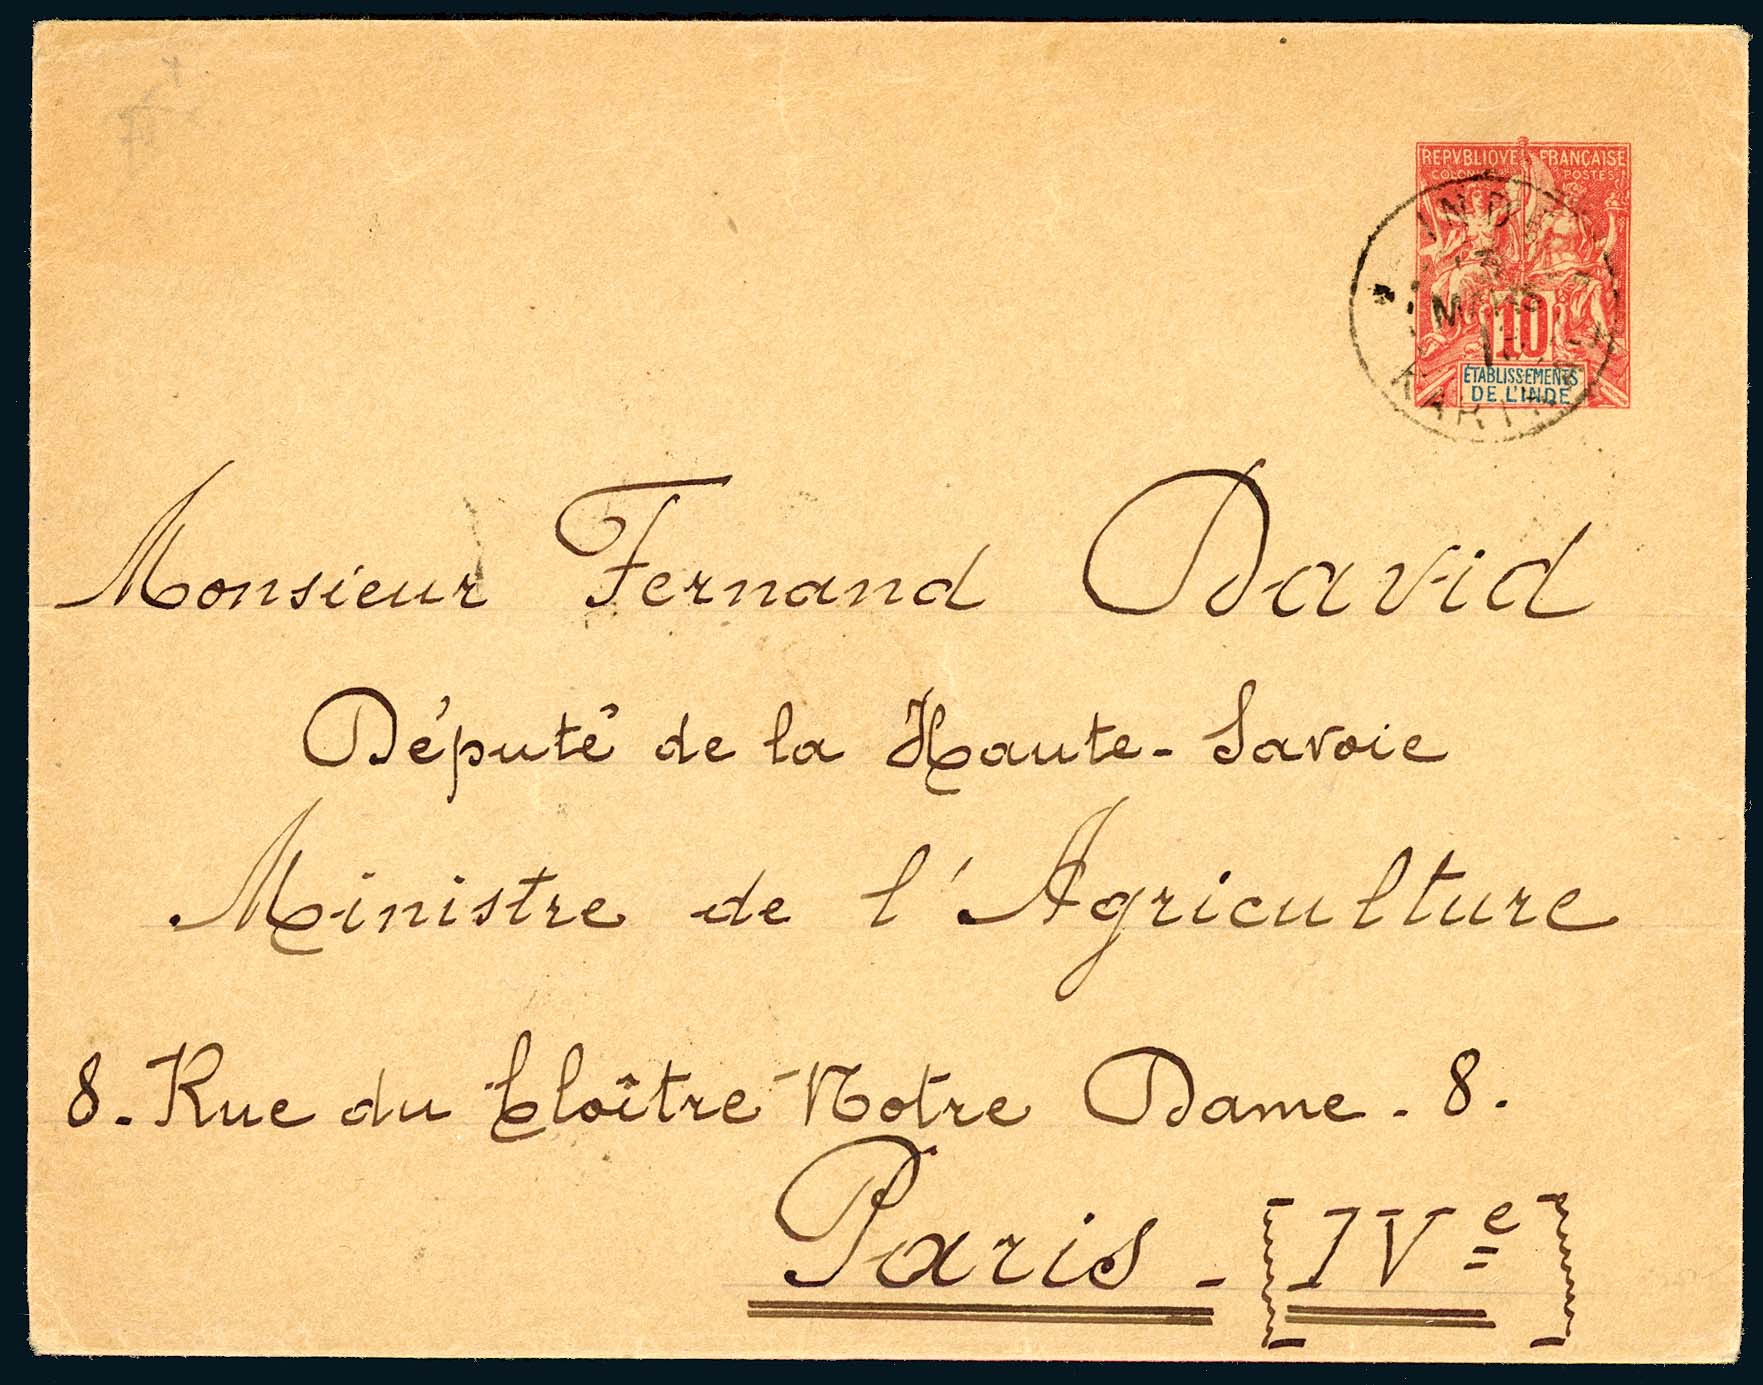 REPVBLIQVE FRANÇAISE
POSTES
INDE
MARS
10
ÉTABLISSEMENTS
DE L'INDE
Monsieur Fernand David
Député de la Haute-Savoie
Ministre de l'Agriculture
8. Rue du Cloître Notre Dame. 8.
Paris - [IVe]